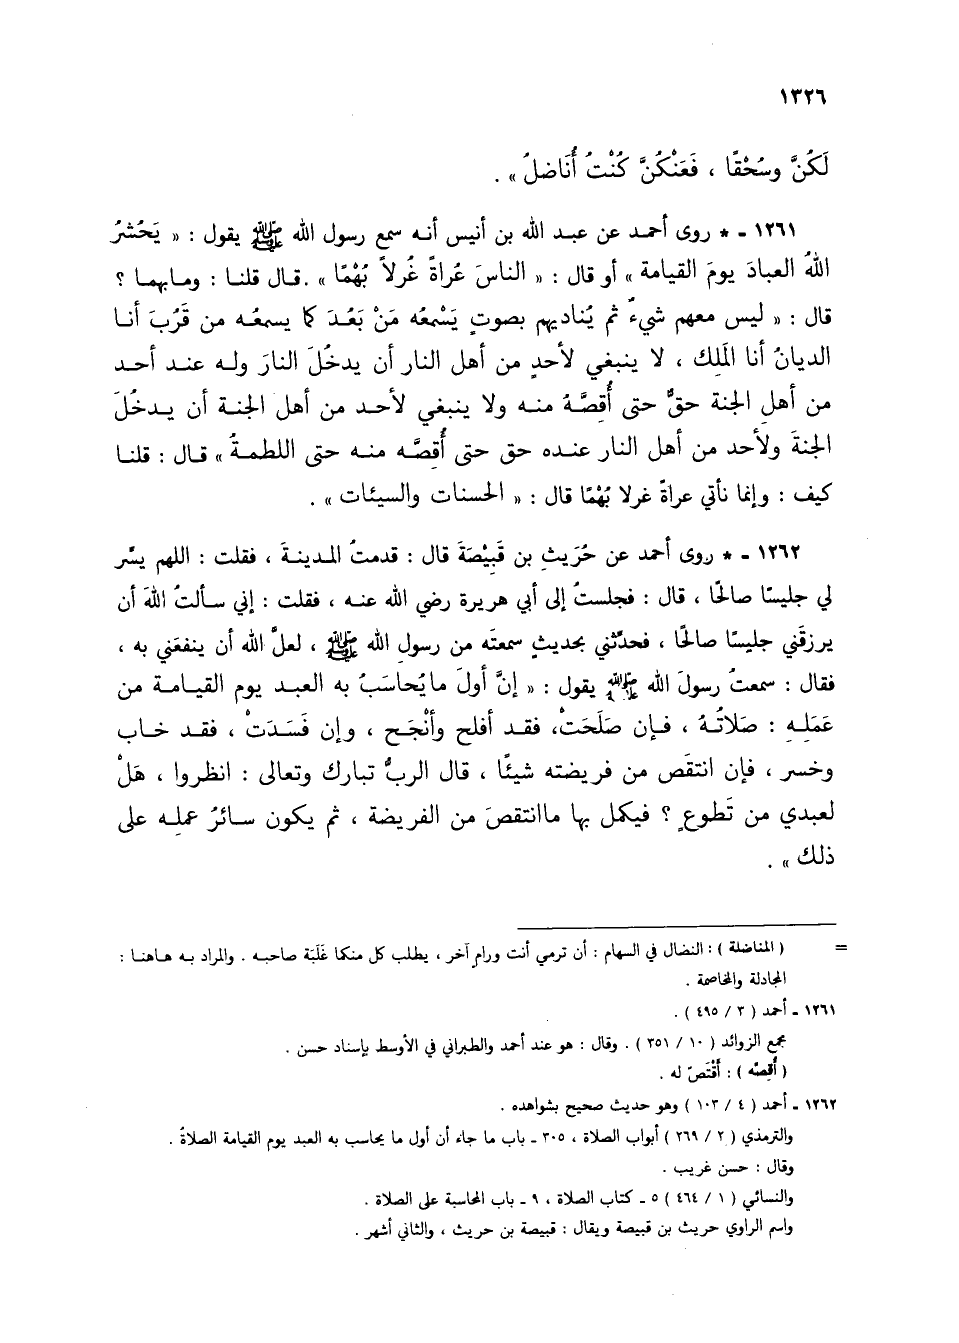 ١٣٢٦
لَكُنَّ وسُحْقًا ، فَعَنْكُنَّ كُنْتُ أُنَاضلُ » .
١٢٦١ - * روى أحمد عن عبد الله بن أنيس أنه سمع رسول الله ﷺ يقول : « يَحْشُرُ
اللهُ العبادَ يومَ القيامة » أو قال : « الناسَ عُراةً غُرلاً بُهْمًا » . قال قلنا : ومابهما ؟
قال : « ليس معهم شيءٌ ثم يُناديهم بصوتٍ يَسْمعُه مَنْ بَعُدَ كما يسمعُه من قَرُبَ أنا
الديانُ أنا المَلِك ، لا ينبغي لأحدٍ من أهل النار أن يدخُلَ النارَ وله عند أحد
من أهلِ الجنة حقٌّ حتى أُقِصَّهُ منه ولا ينبغي لأحد من أهل الجنة أن يدخُلَ
الجنةَ ولأحد من أهل النار عنده حق حتى أُقصَّه منه حتى اللطمةُ » قال : قلنا
كيف : وإنما نأتي عراةً غرلا بُهْمًا قال : « الحسنات والسيئات » .
١٢٦٢ - * روى أحمد عن حُرَيثِ بن قَبِيْصَةَ قال : قدمتُ المدينةَ ، فقلت : اللهم يسِّر
لي جليسًا صالحًا ، قال : فجلستُ إلى أبي هريرة رضي الله عنه ، فقلت : إني سألتُ اللهَ أن
يرزقَني جليسًا صالحًا ، فحدِّثني بحديثٍ سمعتَه من رسولِ الله ﷺ ، لعلَّ الله أن ينفعَني به ،
فقال : سمعتُ رسولَ الله ﷺ يقول : « إنَّ أولَ مايُحاسَبُ به العبد يوم القيامة من
عَمَلِهِ : صَلاتُهُ ، فإن صَلَحَتْ، فقد أفلح وأنْجَح ، وإن فَسَدَتْ ، فقد خاب
وخسر ، فإن انتقَص من فريضته شيئًا ، قال الربُّ تبارك وتعالى : انظروا ، هَلْ
لعبدي من تَطوعٍ ؟ فيكمل بها ماانتقصَ من الفريضة ، ثم يكون سائرُ عملِه على
ذلك » .
= ( المناضلة ) : النضال في السهام : أن ترمي أنت ورامٍ آخر ، يطلب كل منكما غَلَبَة صاحبه . والمراد به هاهنا :
المجادلة والمخاصمة .
١٢٦١ - أحمد ( ٣ / ٤٩٥ ) .
مجمع الزوائد ( ١٠ / ٣٥١ ) . وقال : هو عند أحمد والطبراني في الأوسط بإسناد حسن .
( أُقِصَّه ) : أَقْتَصّ له .
١٢٦٢ - أحمد ( ٤ / ١٠٣ ) وهو حديث صحيح بشواهده .
والترمذي ( ٢ / ٢٦٩ ) أبواب الصلاة ، ٣٠٥ - باب ما جاء أن أول ما يحاسب به العبد يوم القيامة الصلاةُ .
وقال : حسن غريب .
والنسائي ( ١ / ٤٦٤ ) ٥ - كتاب الصلاة ، ٩ - باب المحاسبة على الصلاة .
واسم الراوي حريث بن قبيصة ويقال : قبيصة بن حريث ، والثاني أشهر .